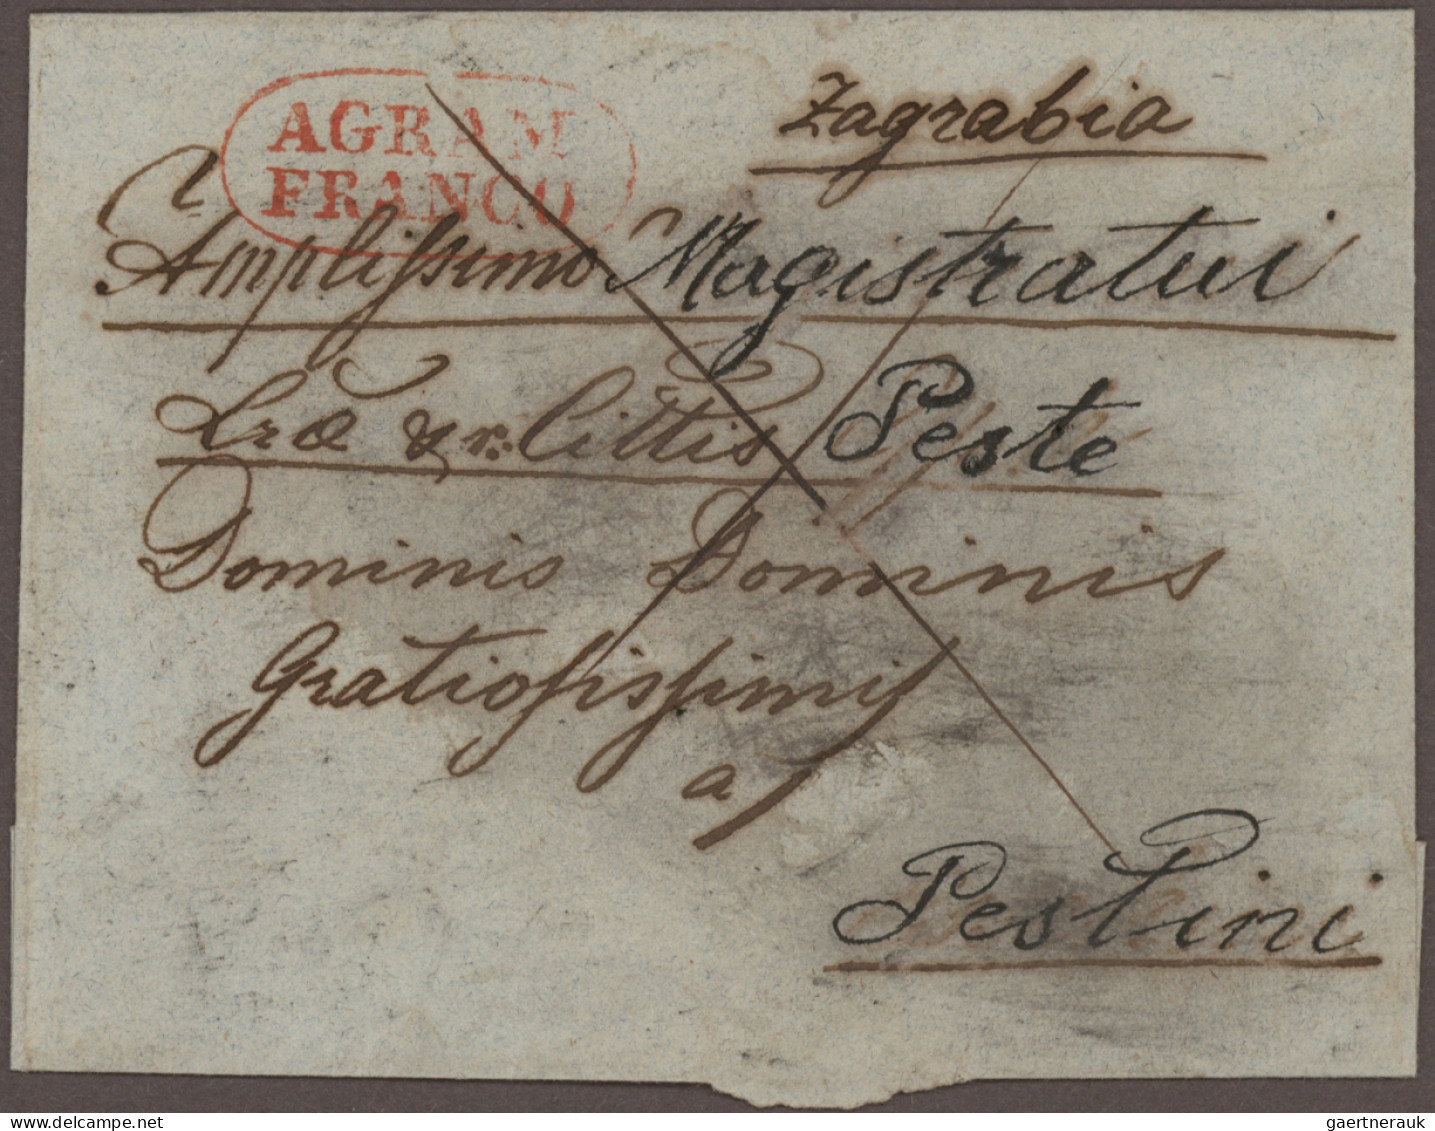 AGRAM
FRANCO
Zagrabia
Amplissimo Magistratui
Lræ & r: Cittis Peste
Dominis Dominis
Gratiosissimis
a/
Pestini
gaertnerauk